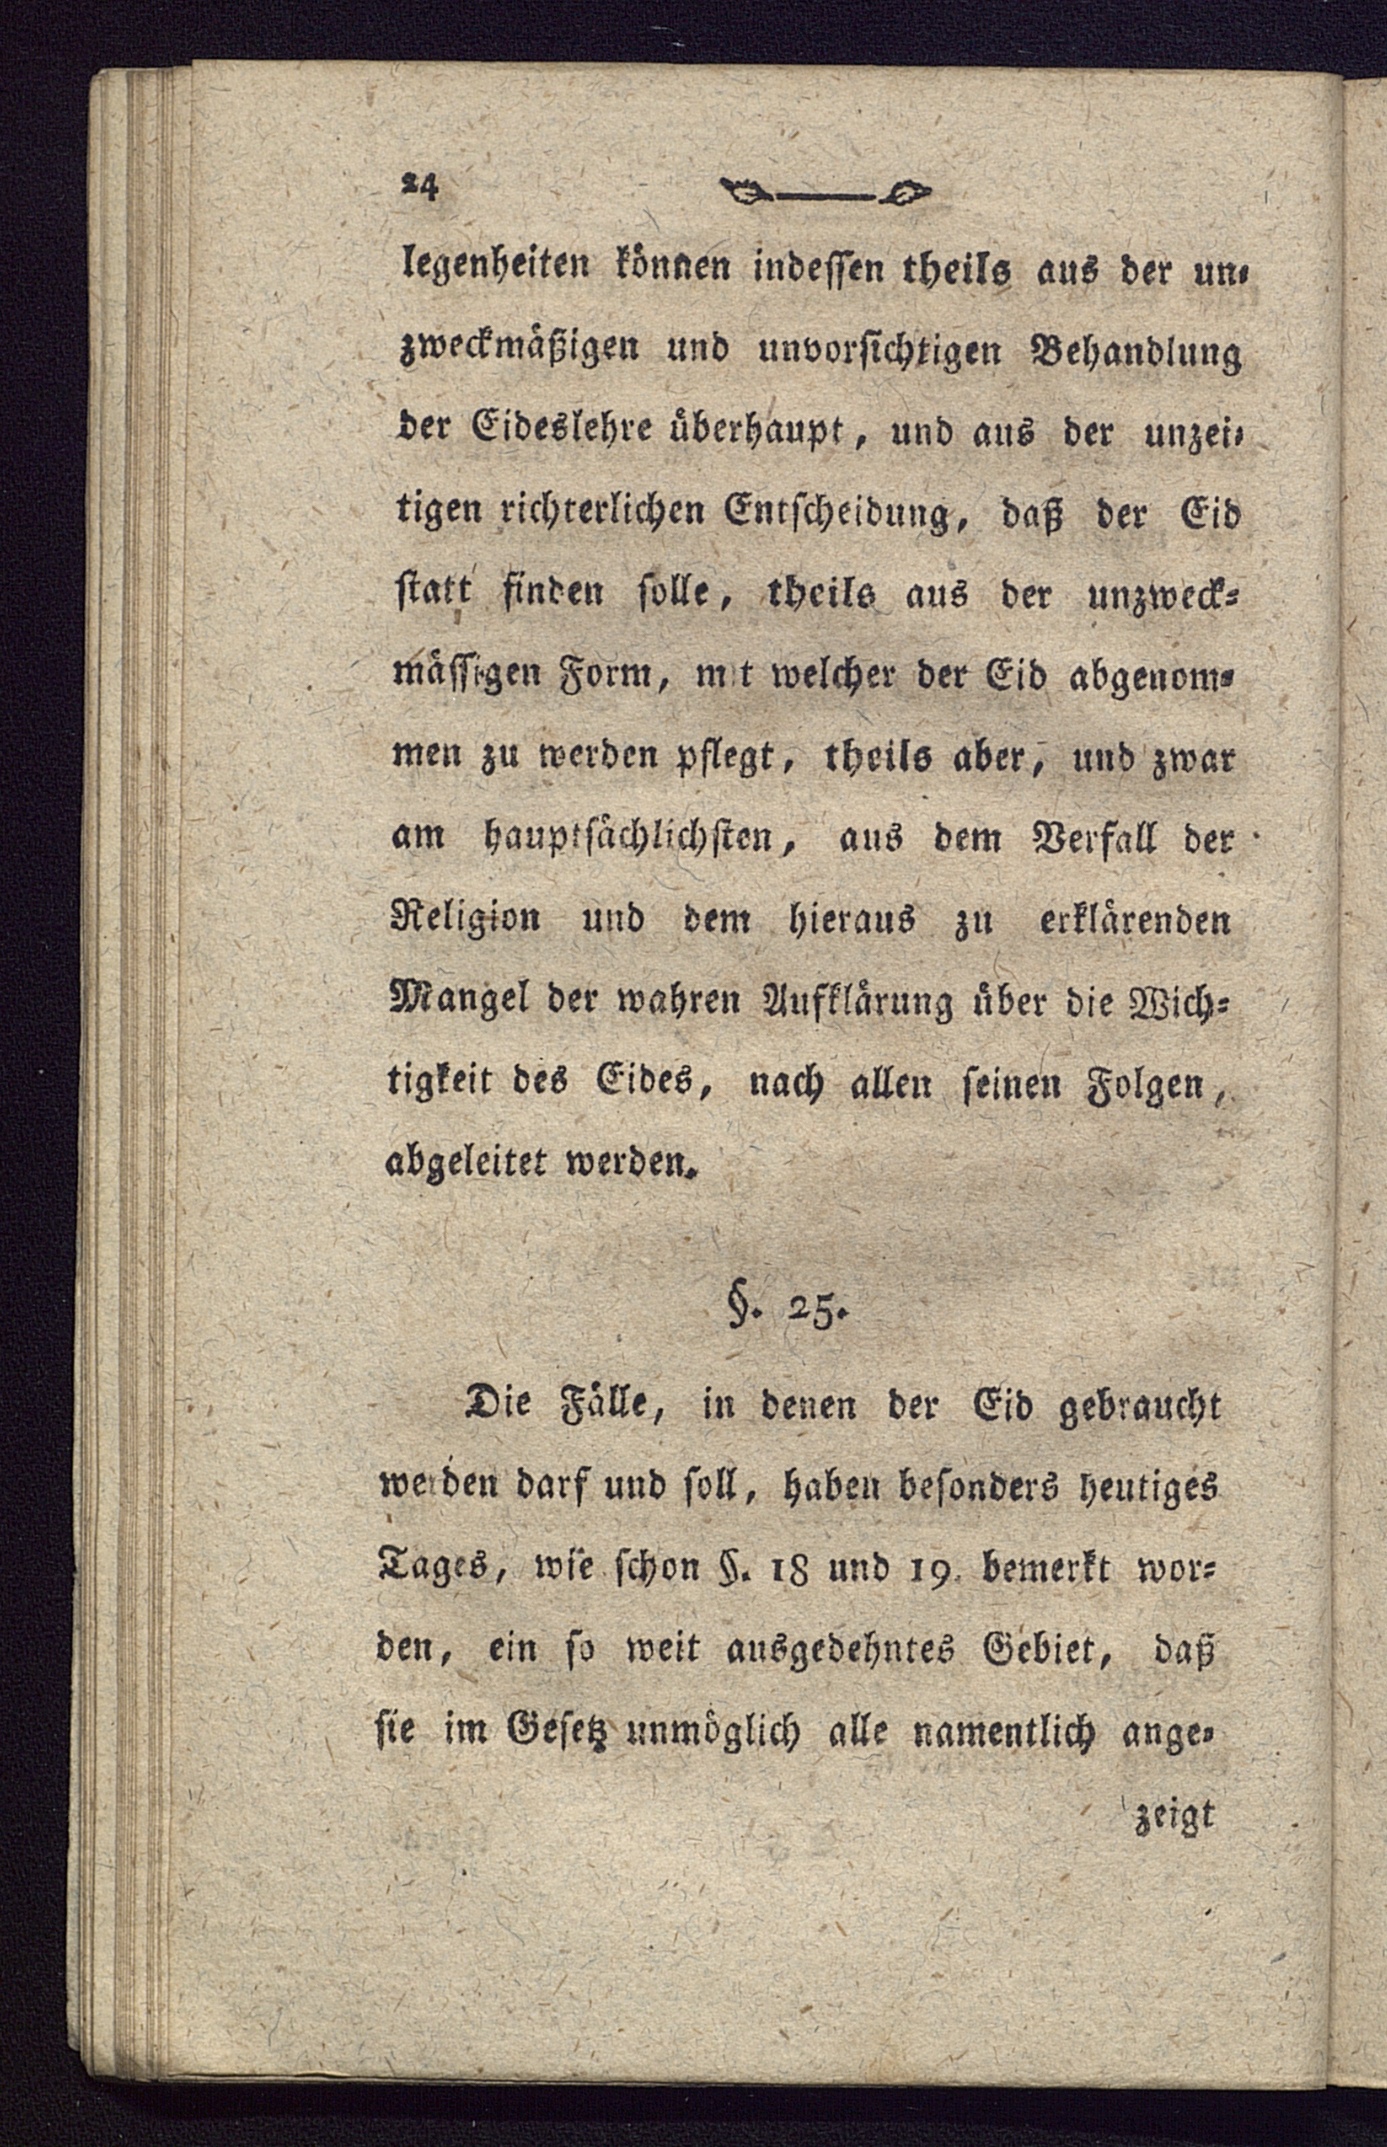 24
legenheiten können indessen theils aus der un-
zweckmäßigen und unvorsichtigen Behandlung
der Eideslehre überhaupt, und aus der unzei-
tigen richterlichen Entscheidung, daß der Eid
statt finden solle, theils aus der unzweck-
mässigen Form, mit welcher der Eid abgenom-
men zu werden pflegt, theils aber, und zwar
am hauptsächlichsten, aus dem Verfall der
Religion und dem hieraus zu erklärenden
Mangel der wahren Aufklärung über die Wich-
tigkeit des Eides, nach allen seinen Folgen,
abgeleitet werden.
§. 25.
Die Fälle, in denen der Eid gebraucht
werden darf und soll, haben besonders heutiges
Tages, wie schon §. 18 und 19. bemerkt wor-
den, ein so weit ausgedehntes Gebiet, daß
sie im Gesetz unmöglich alle namentlich ange-
zeigt